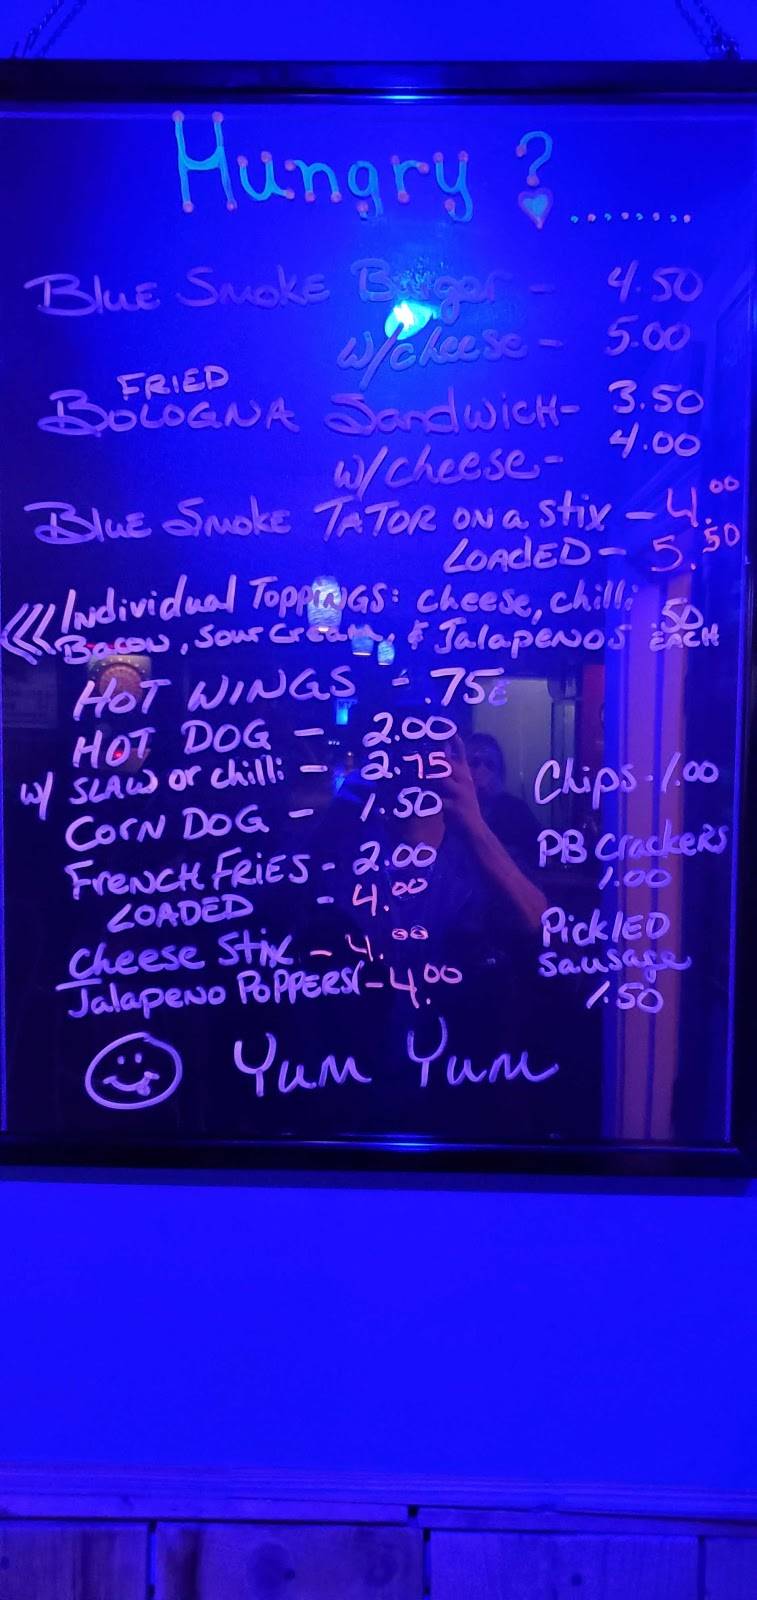 Hungry ?........
Blue Smoke Burger - 4.50
w/cheese - 5.00
FRIED
Bologna Sandwich - 3.50
w/cheese - 4.00
Blue Smoke Tator on a stix - 4.00
Loaded - 5.50
Individual Toppings: cheese, chilli .50
Bacon, Sour Cream, & Jalapenos EACH
Hot Wings - .75¢
Hot Dog - 2.00
w/ Slaw or chilli - 2.75
Corn Dog - 1.50
French Fries - 2.00
Loaded - 4.00
Cheese Stix - 4.00
Jalapeno Poppers - 4.00
Chips - 1.00
PB Crackers
1.00
Pickled
Sausage
1.50
Yum Yum